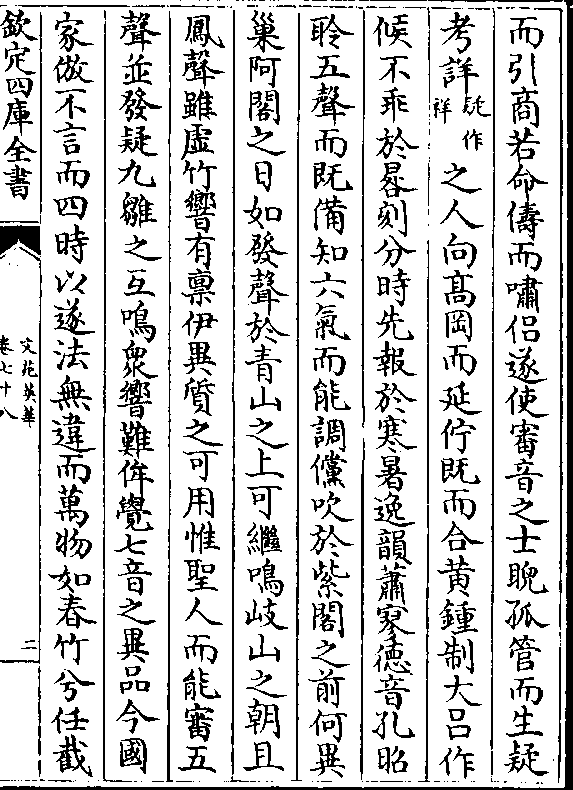 而引商若命儔而嘯侶遂使審音之士睨孤管而生疑
考詳疑作祥之人向髙岡而延佇既而合黄鍾制大吕作
候不乖於晷刻分時先報於寒暑逸韻蕭寥德音孔昭
聆五聲而既備知六氣而能調儻吹於紫閣之前何異
巢阿閣之日如發聲於青山之上可繼鳴岐山之朝且
鳳聲雖虚竹響有禀伊異質之可用惟聖人而能審五
聲並發疑九雛之互鳴衆響難侔覺七音之異品今國
家倣不言而四時以遂法無違而萬物如春竹兮任截
欽定四庫全書
文苑英華
卷七十八
二